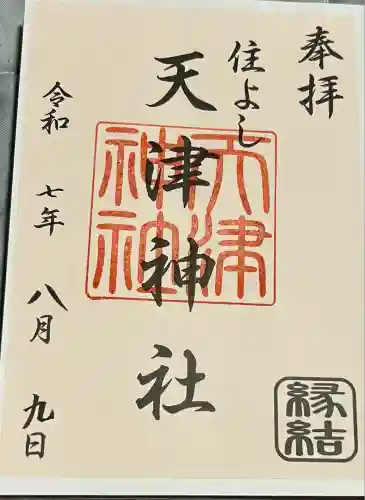 奉拝
住よし
天津神社
天津
神社
令和 七年 八月 九日
縁結